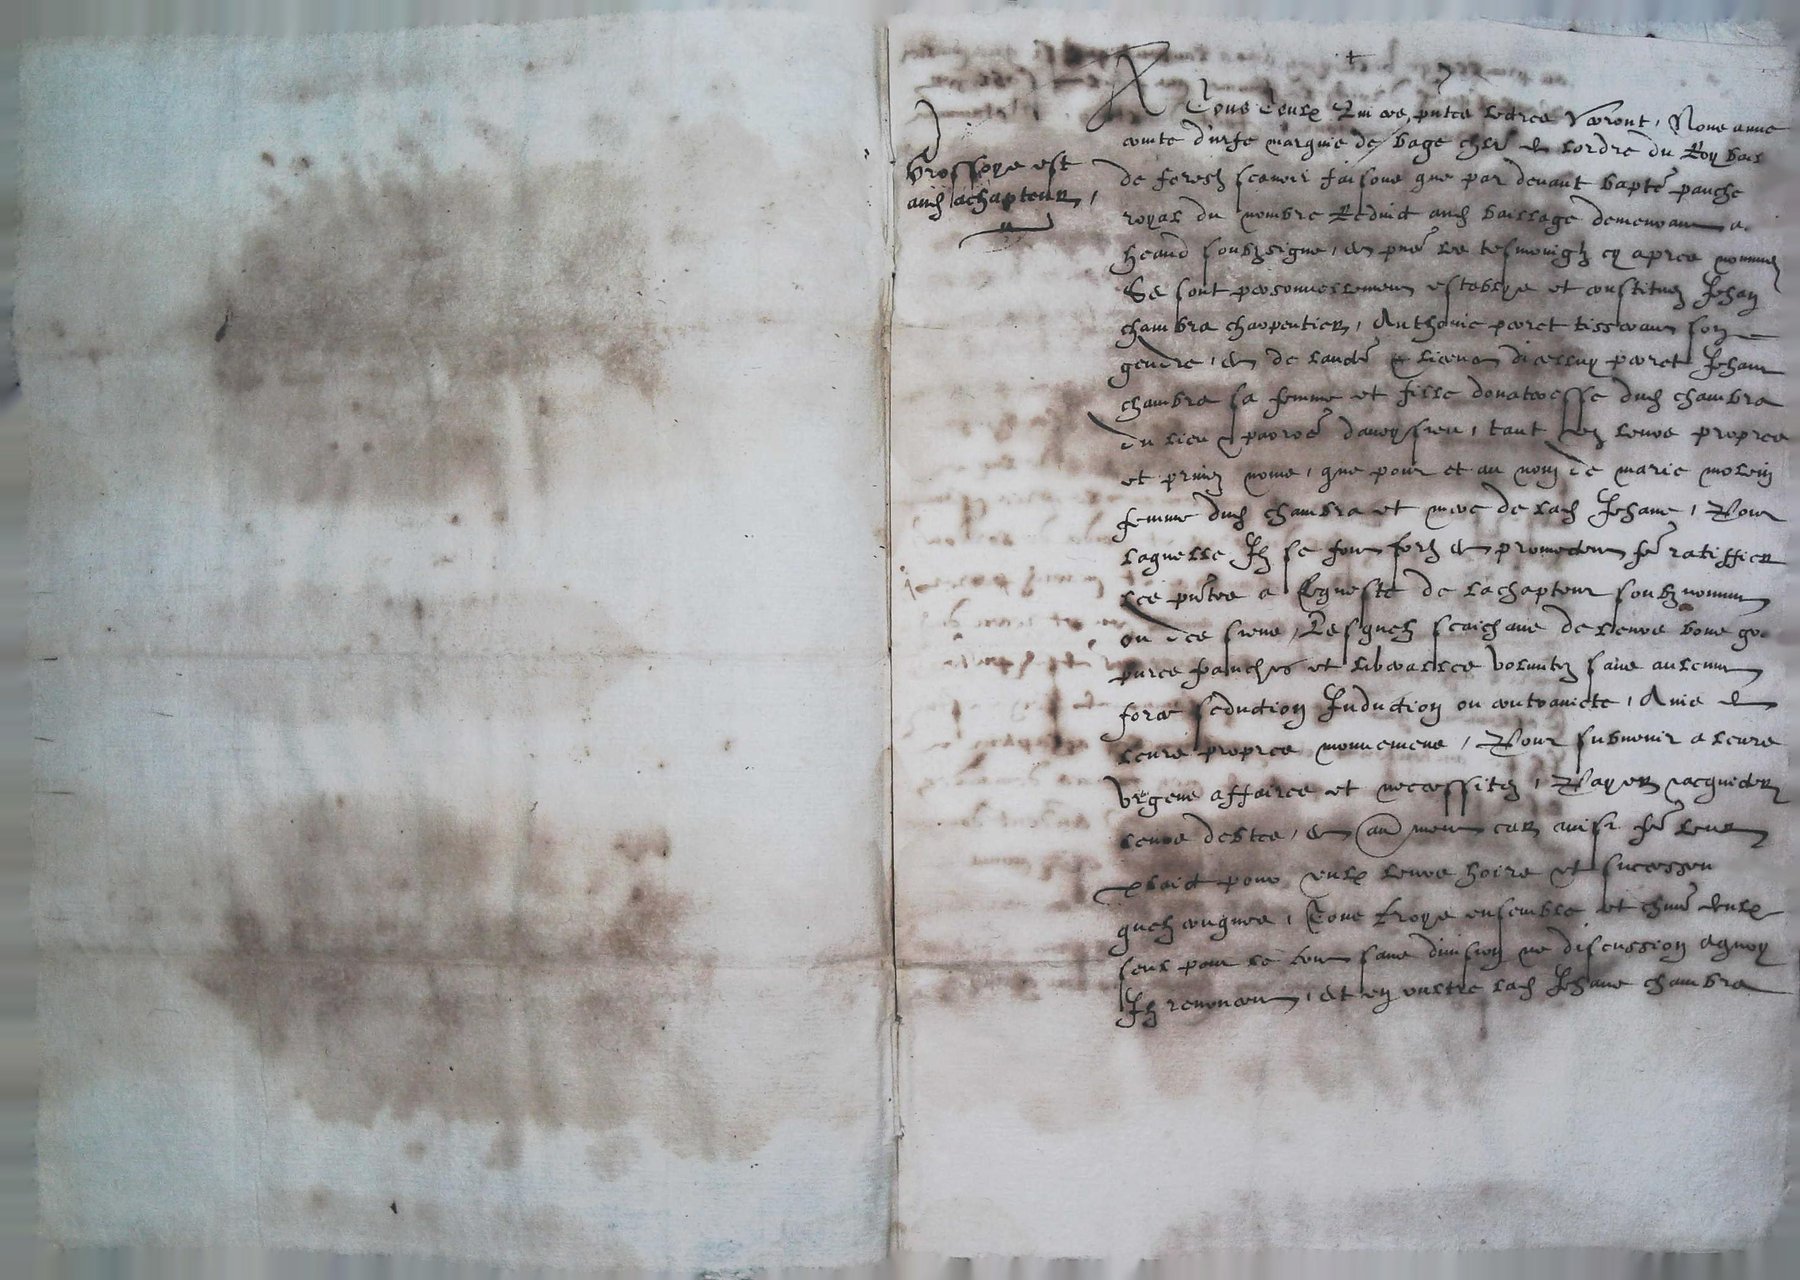 Grossoye est
audt achapteur
A Tous ceulx Qui ces pntes lectres verront, Nous anne
comte d'urfe marquis de bage chlr de lordre du Roy bail
de foresz scavoir faisons que par devant bapte panche
royal du nombre Reduict audt bailliage demeurant a
heand soubzsigne, et pnt les tesmoingz cy apres nommez
Se sont personnellement establys et constituez Jehan
chambra charpentier, Anthonie peret tisserant son
gendre, et de laucte & licence dicelluy peret Jehanne
chambra sa femme et fille donataresse dudt chambra
du lieu & parroe daveyssieu, tant en leurs propres
et privez noms, que pour et au nom de marie molin
femme dudt chambra et mere de ladt Jehane, Pour
laquelle Ilz se font fortz et promectent fe ratiffier
les pntes a Requeste de lachapteur soubz nomme
ou des siens, Lesquelz scaichans de leurs bons gre
pures franches et liberalles voluntez sans aulcune
force seduction Induction ou contraincte, Ains de
leurs propres mouvemens, Pour subvenir a leurs
urgens affaires et necessitez, Payer & acquicter
leurs debtes, et aultrement car ainsi fe leur
plaict pour eulx leurs hoirs et successeurs
quelz conques, Tous troys ensemble et chun deulx
seul pour le tout sans division ne discussion a quoy
Ilz renoncent, Et en oultre ladt Jehane chambra